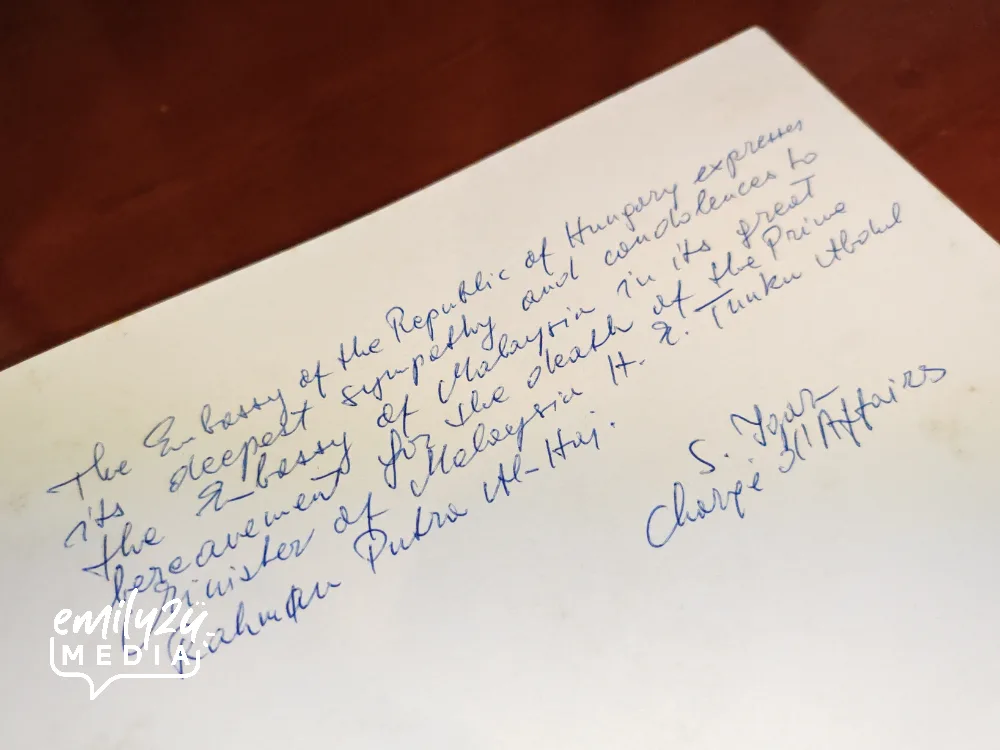 The Embassy of the Republic of Hungary expresses
its deepest sympathy and condolences to
the Embassy of Malaysia in its great
bereavement for the death of the Prime
Minister of Malaysia H. E. Tunku Abdul
Rahman Putra Al-Haj.
S.
Chargé d'Affaires
emily2u
MEDIA